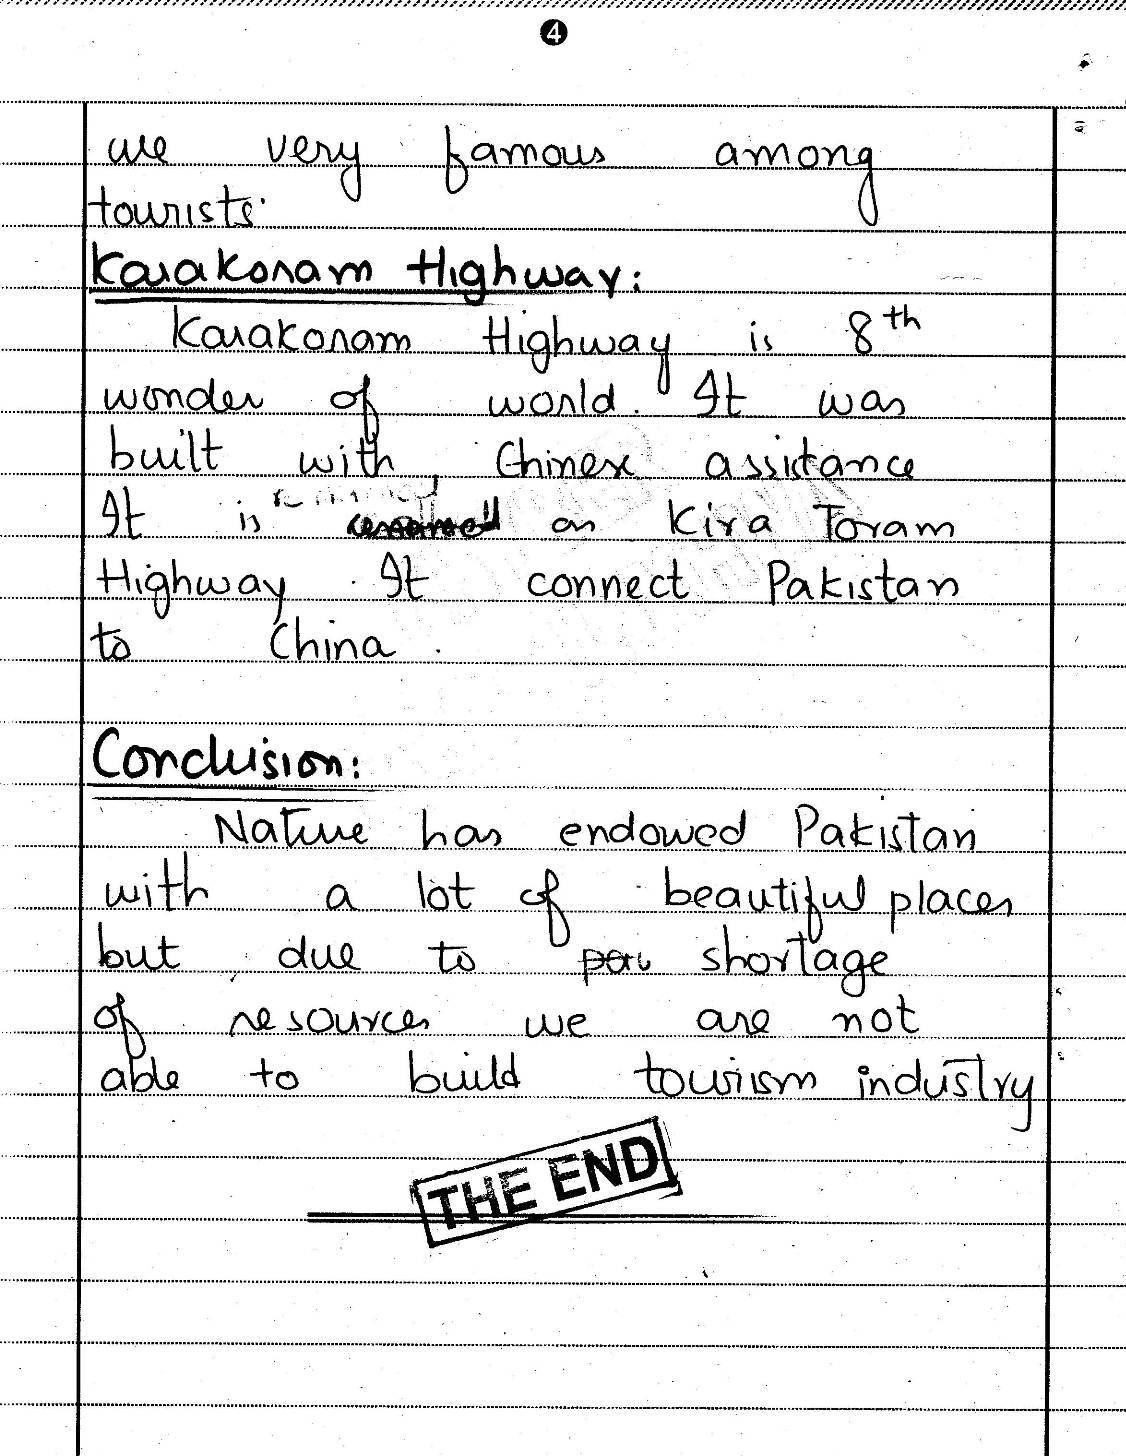 4
are very famous among
tourists.
Karakoram Highway:
Karakoram Highway is 8th
wonder of world. It was
built with Chinese assistance
It is renamed as Kira Toram
Highway. It connect Pakistan
to China.
Conclusion:
Nature has endowed Pakistan
with a lot of beautiful places
but due to shortage
of resources we are not
able to build tourism industry
THE END